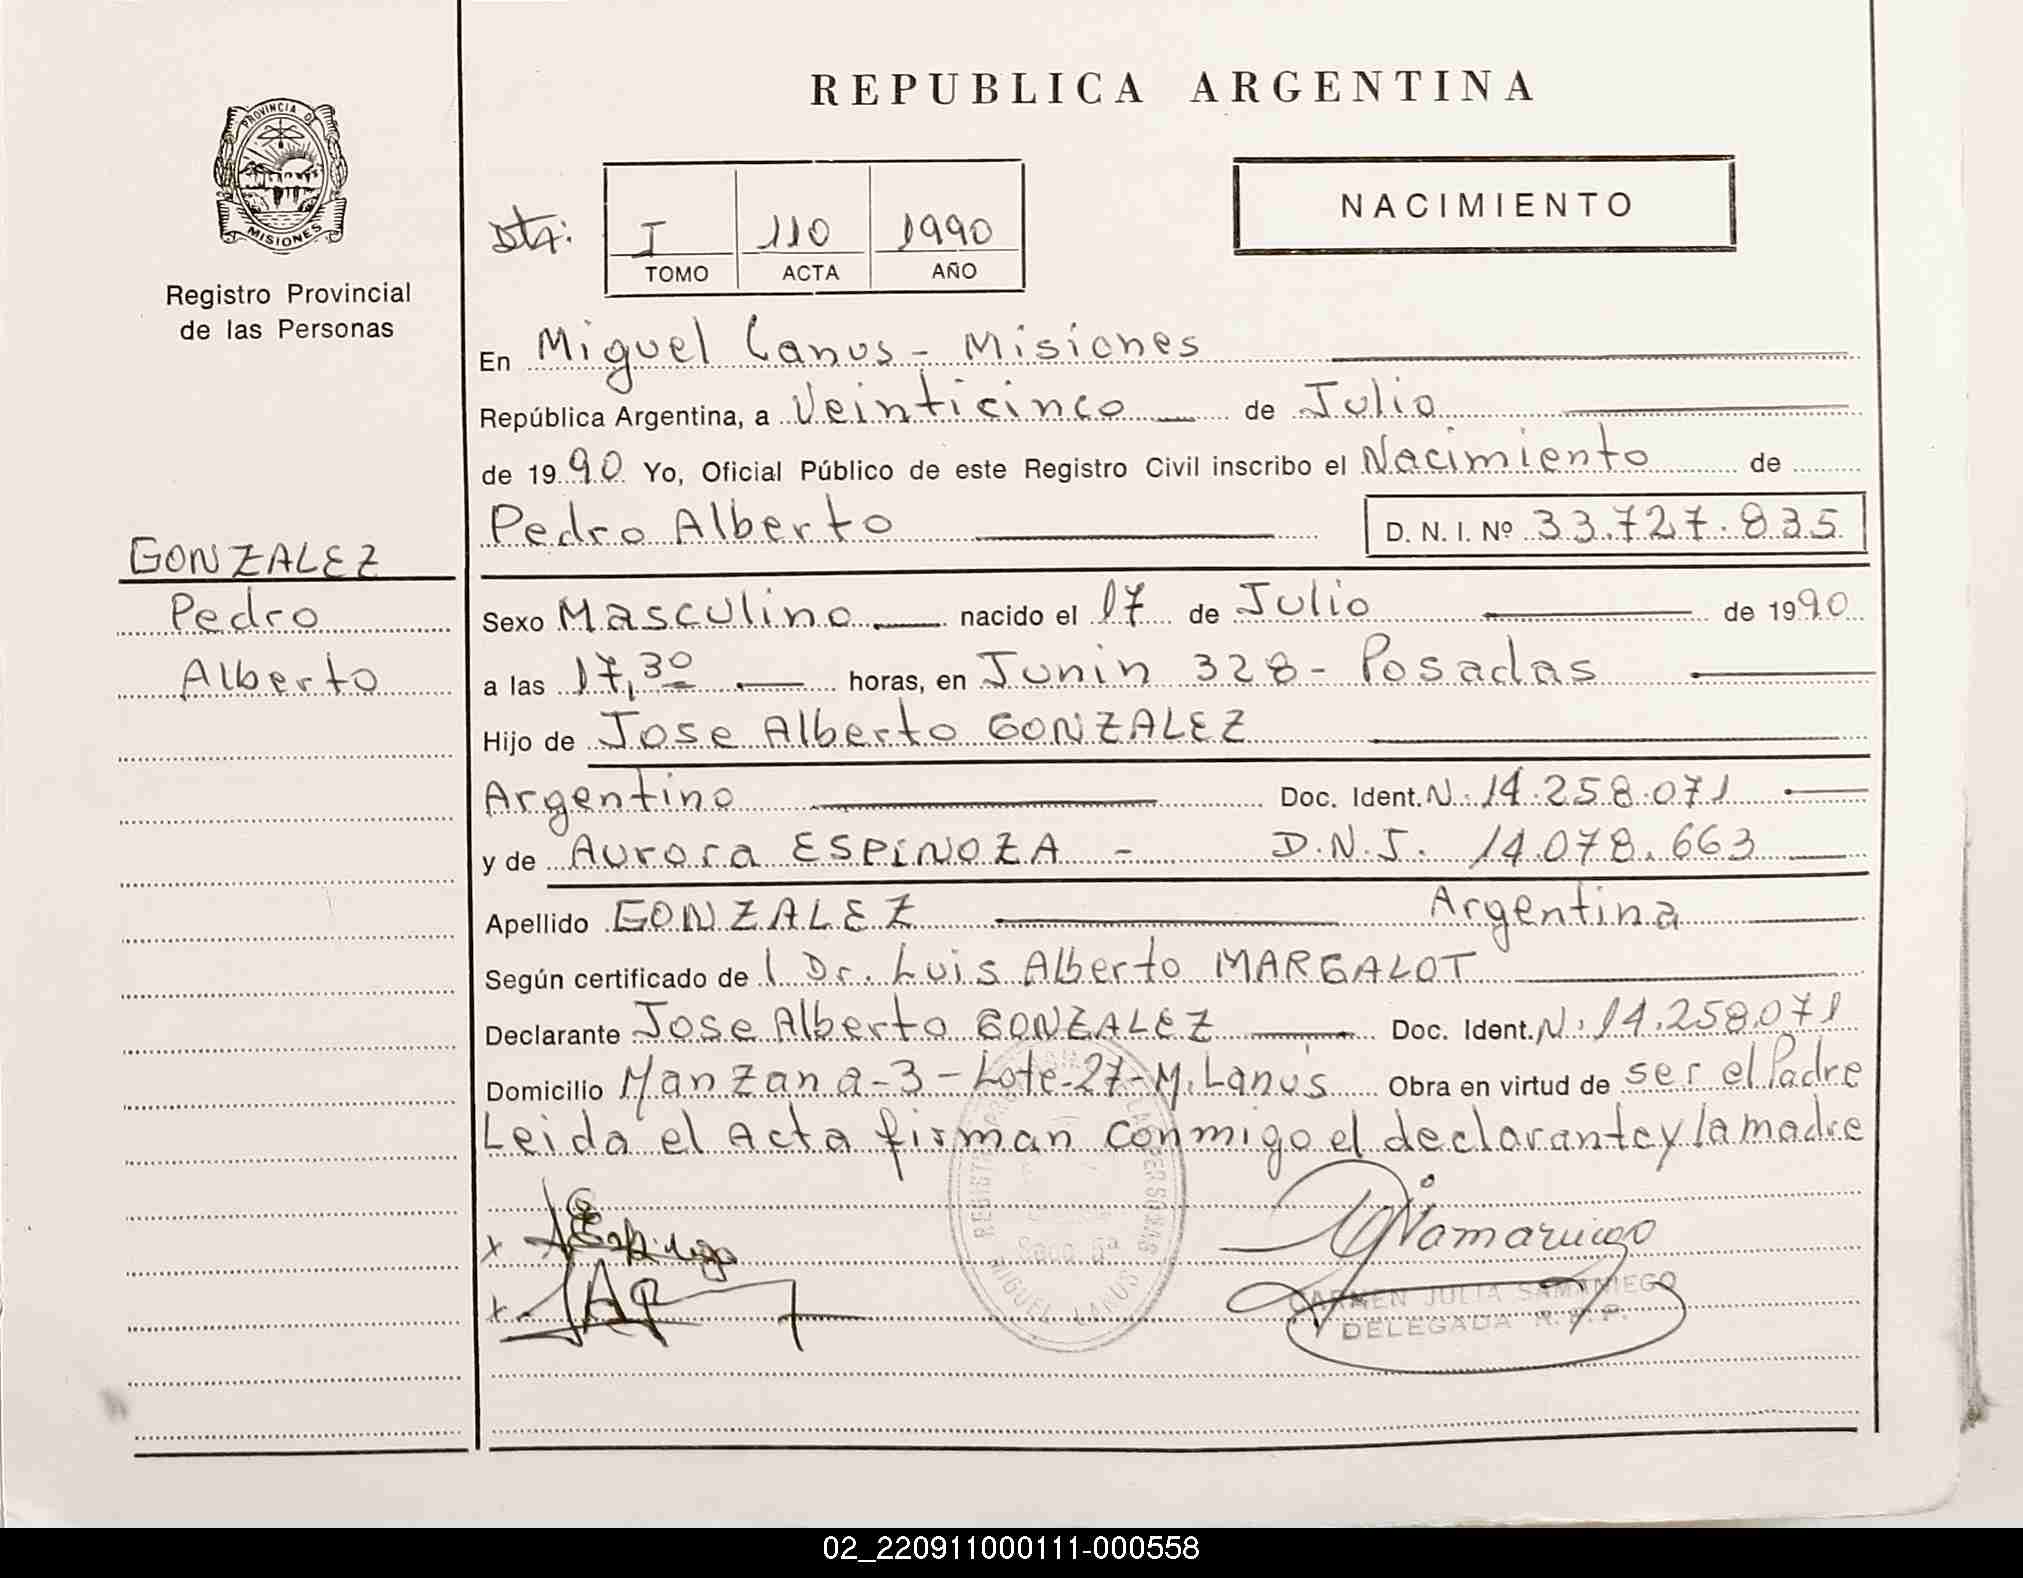 REPUBLICA ARGENTINA
PROVINCIA DE
MISIONES
Registro Provincial
de las Personas
I 110 1990
TOMO ACTA AÑO
NACIMIENTO
En Miguel Lanus - Misiones
República Argentina, a Veinticinco de Julio
de 1990 Yo, Oficial Público de este Registro Civil inscribo el Nacimiento de
Pedro Alberto D. N. I. Nº 33.727.835
GONZALEZ
Pedro
Alberto
Sexo Masculino nacido el 17 de Julio de 1990
a las 17,30 horas, en Junin 328 - Posadas
Hijo de Jose Alberto GONZALEZ
Argentino Doc. Ident. N: 14.258.071
y de Aurora ESPINOZA - D.N.I. 14.078.663
Apellido GONZALEZ Argentina
Según certificado de l Dr. Luis Alberto MARGALOT
Declarante Jose Alberto GONZALEZ Doc. Ident. N: 14.258.071
Domicilio Manzana-3-Lote-27-M. Lanus Obra en virtud de ser el Padre
Leida el Acta firman conmigo el declarante y la madre
MIGUEL LANUS
CARMEN JULIA SAMANIEGO
DELEGADA R.P.P.
02_220911000111-000558